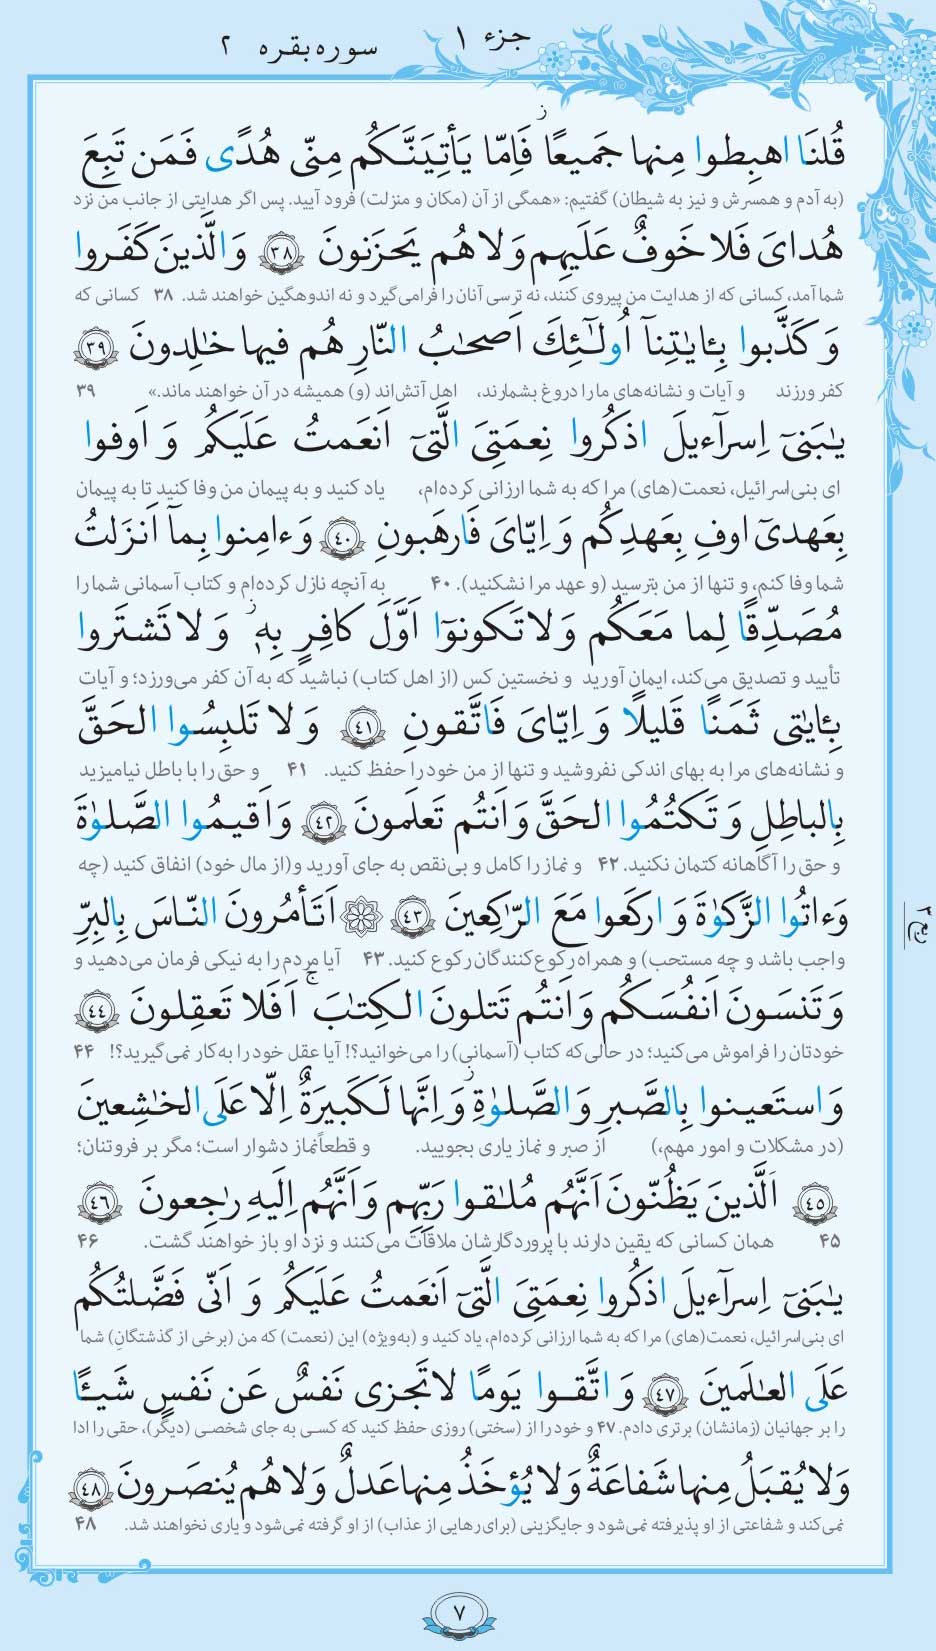 جزء ۱
سوره بقره ۲
قُلنَا اهبِطوا مِنها جَميعًا ۖ فَاِمّا يَأتِيَنَّكُم مِنّى هُدًى فَمَن تَبِعَ
(به آدم و همسرش و نیز به شیطان) گفتیم: «همگی از آن (مکان و منزلت) فرود آیید. پس اگر هدایتی از جانب من نزد
هُداىَ فَلا خَوفٌ عَلَيهِم وَ لا هُم يَحزَنونَ ﴿٣٨﴾ وَ الَّذينَ كَفَروا
شما آمد، کسانی که از هدایت من پیروی کنند، نه ترسی آنان را فرامی‌گیرد و نه اندوهگین خواهند شد. ۳۸ کسانی که
وَ كَذَّبوا بِـٔايٰتِنآ اُولٰٓئِكَ اَصحٰبُ النّارِ هُم فيها خٰلِدونَ ﴿٣٩﴾
کفر ورزند و آیات و نشانه‌های ما را دروغ بشمارند، اهل آتش‌اند (و) همیشه در آن خواهند ماند.» ۳۹
يٰبَنىٓ اِسرآءيلَ اذكُروا نِعمَتِىَ الَّتىٓ اَنعَمتُ عَلَيكُم وَ اَوفوا
ای بنی‌اسرائیل، نعمت(های) مرا که به شما ارزانی کرده‌ام، یاد کنید و به پیمان من وفا کنید تا به پیمان
بِعَهدىٓ اوفِ بِعَهدِكُم وَ اِيّاىَ فَارهَبونِ ﴿٤٠﴾ وَ ءامِنوا بِمآ اَنزَلتُ
شما وفا کنم، و تنها از من بترسید (و عهد مرا نشکنید). ۴۰ به آنچه نازل کرده‌ام و کتاب آسمانی شما را
مُصَدِّقًا لِما مَعَكُم وَ لا تَكونوٓا اَوَّلَ كافِرٍ بِهٖ ۖ وَ لا تَشتَروا
تأیید و تصدیق می‌کند، ایمان آورید و نخستین کس (از اهل کتاب) نباشید که به آن کفر می‌ورزد؛ و آیات
بِـٔايٰتى ثَمَنًا قَليلًا وَ اِيّاىَ فَاتَّقونِ ﴿٤١﴾ وَ لا تَلبِسُوا الحَقَّ
و نشانه‌های مرا به بهای اندکی نفروشید و تنها از من خود را حفظ کنید. ۴۱ و حق را با باطل نیامیزید
بِالباطِلِ وَ تَكتُمُوا الحَقَّ وَ اَنتُم تَعلَمونَ ﴿٤٢﴾ وَ اَقيمُوا الصَّلوٰةَ
و حق را آگاهانه کتمان نکنید. ۴۲ و نماز را کامل و بی‌نقص به جای آورید و(از مال خود) انفاق کنید (چه
وَ ءاتُوا الزَّكوٰةَ وَ اركَعوا مَعَ الرّاكِعينَ ﴿٤٣﴾ ۞ اَتَأمُرونَ النّاسَ بِالبِرِّ
واجب باشد و چه مستحب) و همراه رکوع‌کنندگان رکوع کنید. ۴۳ آیا مردم را به نیکی فرمان می‌دهید و
وَ تَنسَونَ اَنفُسَكُم وَ اَنتُم تَتلونَ الكِتٰبَ ۚ اَفَلا تَعقِلونَ ﴿٤٤﴾
خودتان را فراموش می‌کنید؛ در حالی‌که کتاب (آسمانی) را می‌خوانید؟! آیا عقل خود را به‌کار نمی‌گیرید؟! ۴۴
وَ استَعينوا بِالصَّبرِ وَ الصَّلوٰةِ ۖ وَ اِنَّها لَكَبيرَةٌ اِلّا عَلَى الخٰشِعينَ
(در مشکلات و امور مهم،) از صبر و نماز یاری بجویید. و قطعاً نماز دشوار است؛ مگر بر فروتنان؛
﴿٤٥﴾ اَلَّذينَ يَظُنّونَ اَنَّهُم مُلٰقوا رَبِّهِم وَ اَنَّهُم اِلَيهِ رٰجِعونَ ﴿٤٦﴾
۴۵ همان کسانی که یقین دارند با پروردگارشان ملاقات می‌کنند و نزد او باز خواهند گشت. ۴۶
يٰبَنىٓ اِسرآءيلَ اذكُروا نِعمَتِىَ الَّتىٓ اَنعَمتُ عَلَيكُم وَ اَنّى فَضَّلتُكُم
ای بنی‌اسرائیل، نعمت(های) مرا که به شما ارزانی کرده‌ام، یاد کنید و (به‌ویژه) این (نعمت) که من (برخی از گذشتگانِ) شما
عَلَى العٰلَمينَ ﴿٤٧﴾ وَ اتَّقوا يَومًا لا تَجزى نَفسٌ عَن نَفسٍ شَيـًٔا
را بر جهانیان (زمانشان) برتری دادم. ۴۷ و خود را از (سختی) روزی حفظ کنید که کسی به جای شخصی (دیگر)، حقی را ادا
وَ لا يُقبَلُ مِنها شَفاعَةٌ وَ لا يُؤخَذُ مِنها عَدلٌ وَ لا هُم يُنصَرونَ ﴿٤٨﴾
نمی‌کند و شفاعتی از او پذیرفته نمی‌شود و جایگزینی (برای رهایی از عذاب) از او گرفته نمی‌شود و یاری نخواهند شد. ۴۸
۷